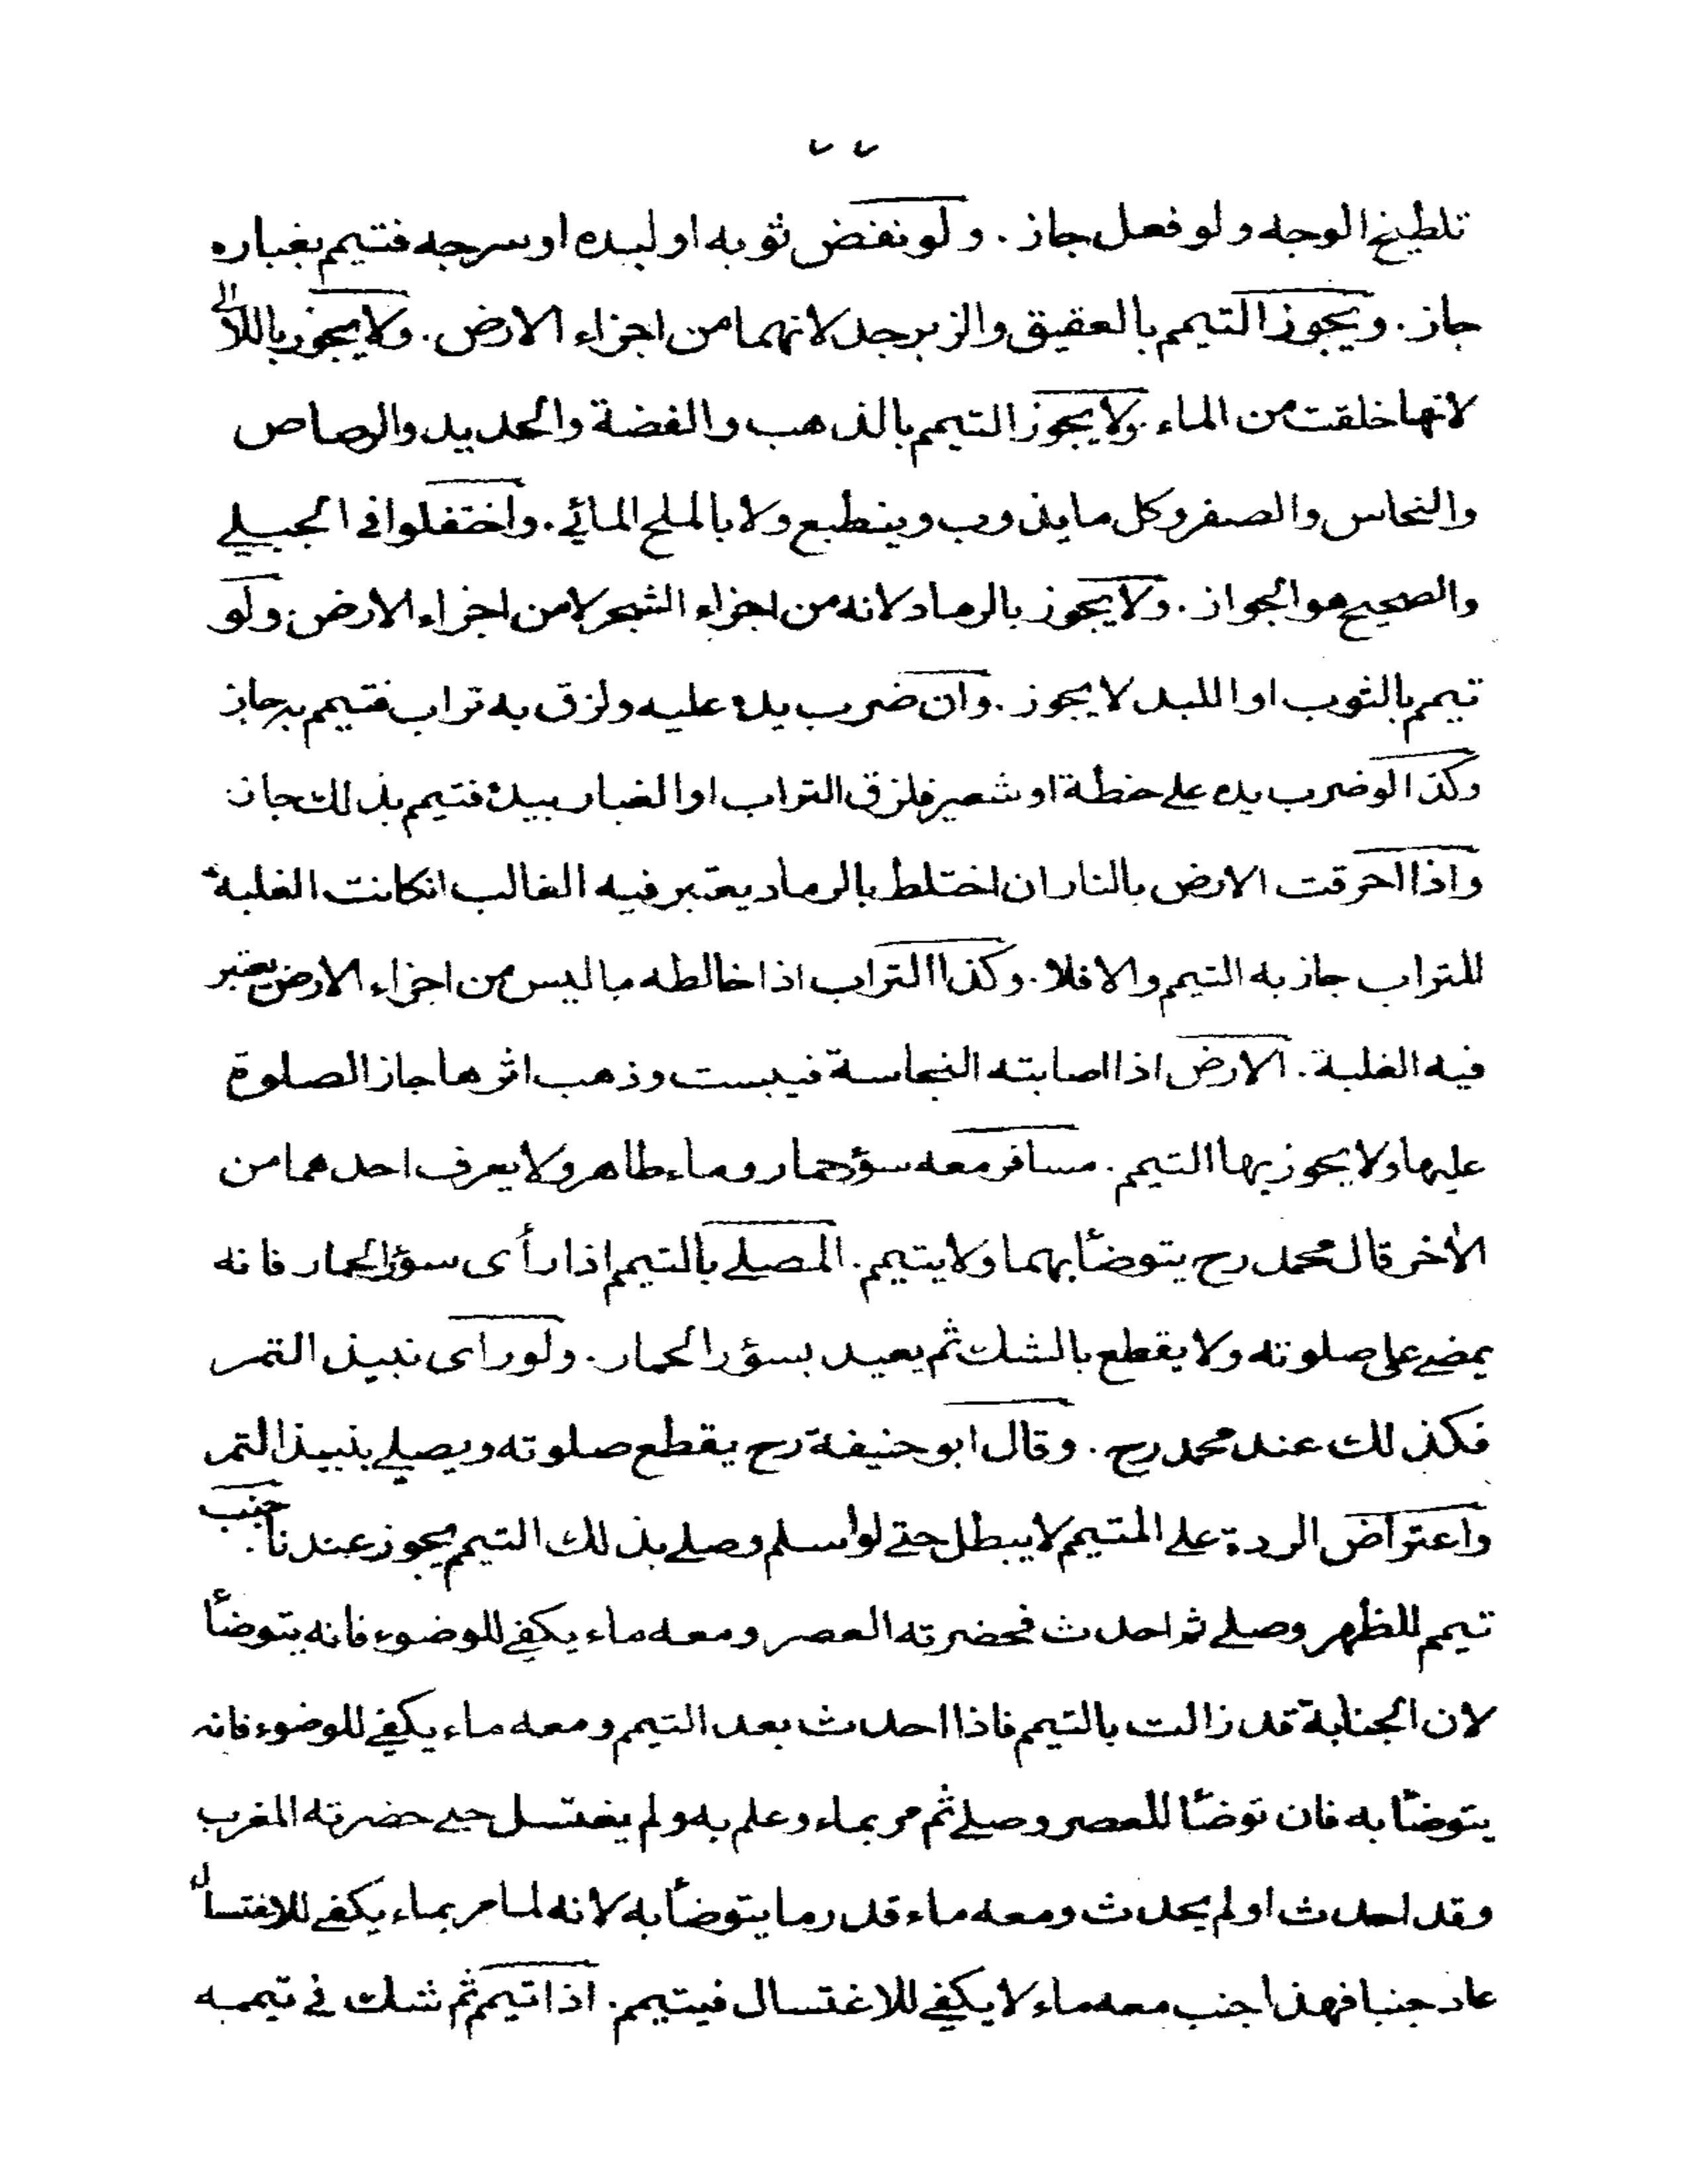 ٧٧
تلطيخ الوجه ولو فعل جاز . ولو نفض ثوبه او لبده او سرجه فتيمم بغباره
جاز . ويجوز التيمم بالعقيق والزبرجد لانهما من اجزاء الارض . ولا يجوز باللآلى
لانها خلقت من الماء . ولا يجوز التيمم بالذهب والفضة والحديد والرصاص
والنحاس والصفر وكل ما يذوب وينطبع ولا بالملح المائي . واختفلوا في الجبلي
والصحيح هو الجواز . ولا يجوز بالرماد لانه من اجزاء الشجر لا من اجزاء الارض . ولو
تيمم بالثوب او اللبد لا يجوز . وان ضرب يده عليه ولزق به تراب فتيمم به جاز
وكذا لو ضرب يده على حنطة او شعير فلزق التراب او الغبار بيده فتيمم بذلك جاز
واذا احرقت الارض بالنار ان اختلط بالرماد يعتبر فيه الغالب انكانت الغلبة
للتراب جاز به التيمم والا فلا . وكذا التراب اذا خالطه ما ليس من اجزاء الارض يعتبر
فيه الغلبة . الارض اذا اصابته النجاسة فيبست وذهب اثرها جاز الصلوة
عليها ولا يجوز بها التيمم . مسافر معه سؤر حمار وماء طاهر ولا يعرف احدهما من
الآخر قال محمد رح يتوضأ بهما ولا يتيمم . المصلي بالتيمم اذا رأى سؤر الحمار فانه
يمضي على صلوته ولا يقطع بالشك ثم يعيد بسؤر الحمار . ولو راى نبيذ التمر
فكذلك عند محمد رح . وقال ابو حنيفة رح يقطع صلوته ويصلي بنبيذ التمر
واعتراض الردة على المتيمم لا يبطل حتى لو اسلم وصلى بذلك التيمم يجوز عندنا . جنب
تيمم للظهر وصلى ثم احدث فحضرته العصر ومعه ماء يكفي للوضوء فانه يتوضأ
لان الجنابة قد زالت بالتيمم فاذا احدث بعد التيمم ومعه ماء يكفي للوضوء فانه
يتوضأ به فان توضأ للعصر وصلى ثم مر بماء وعلم به ولم يغتسل حتى حضرته المغرب
وقد احدث او لم يحدث ومعه ماء قدر ما يتوضأ به لانه لما مر بماء يكفي للاغتسال
عاد جنبا فهذا جنب معه ماء لا يكفي للاغتسال فيتيمم . اذا تيمم ثم شك في تيممه